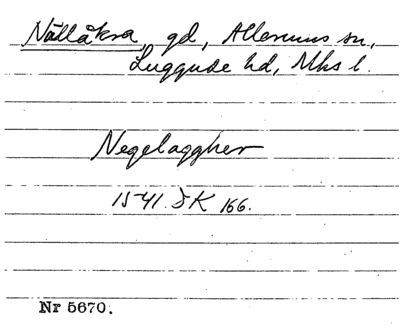 Nällåkra, gd, Allerums sn,
Luggude hd, Mhs l.
Negelaggher
1541 JK 166.
Nr 5670.